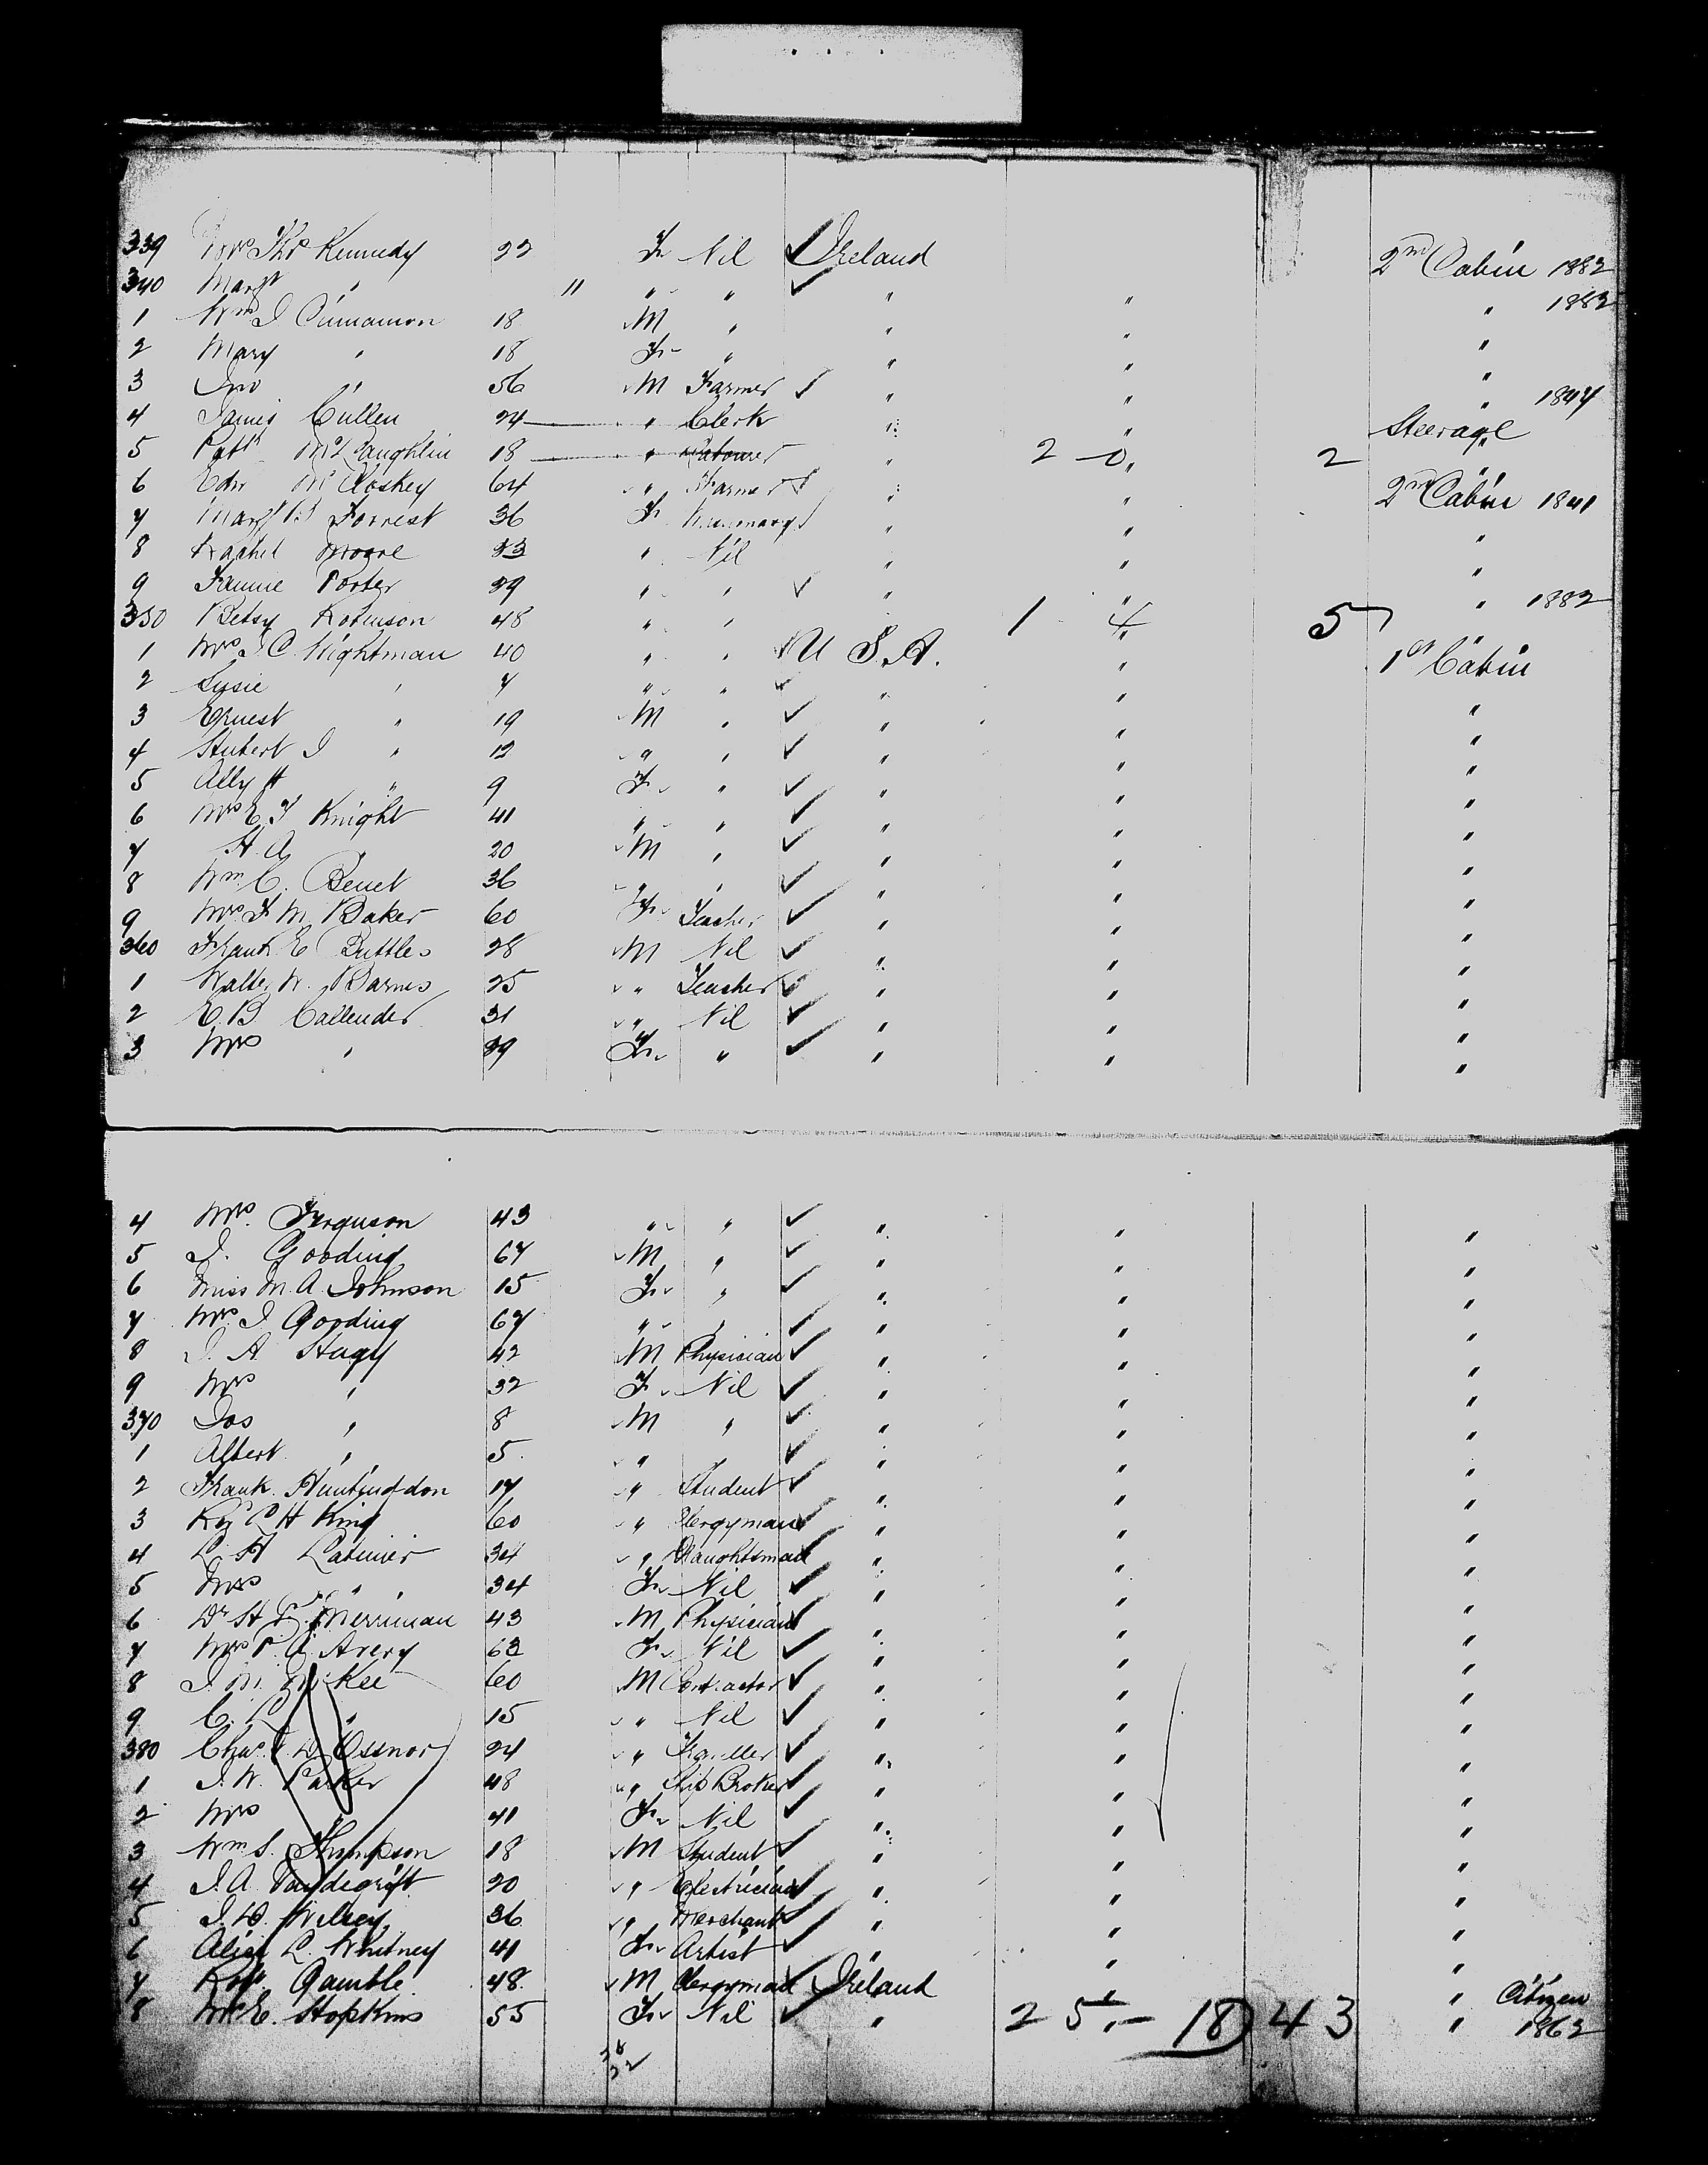 339 Mrs Thos Kennedy 22 F Nil Ireland 2nd Cabin 1882
340 Margt " 11 " " " " " 1882
1 Wm J Cinnamon 18 M " " " "
2 Mary " 18 F " " " "
3 Jno " 56 M Farmer " " " 1847
4 James Cullen 24 " Clerk " " Steerage
5 Patk McLaughlin 18 " Labourer " 2 0 " 2 "
6 Edw McCloskey 64 " Farmer " " 2nd Cabin 1841
7 Margt B Forrest 36 F " " "
8 Rachel Moore 33 " Nil " " "
9 Fannie Porter 39 " " " " " 1882
350 Betsy Robinson 48 " " 1 4 " 5
1 Mrs J C Wightman 40 " " U S.A. " 1st Cabin
2 Susie " 7 " " " " "
3 Ernest " 19 M " " " "
4 Hubert J " 12 " " " " "
5 Ally H " 9 F " " " "
6 Mrs E F Knight 41 " " " " "
7 H. A. " 20 M " " " "
8 Wm C. Benet 36 " " " " "
9 Mrs F M Baker 60 F Teacher " " "
360 Frank E Buttles 28 M Nil " " "
1 Walter W. Barnes 25 " Teacher " " "
2 E. B Callender 31 " Nil " " "
3 Mrs " 39 F " " " "
4 Mrs. Ferguson 43 " " " " "
5 J. Gooding 67 M " " " "
6 Miss M. A. Johnson 15 F " " " "
7 Mrs J Gooding 67 " " " " "
8 J. A 42 M Physician " " "
9 Mrs " 32 F Nil " " "
370 Jos " 8 M " " " "
1 Albert " 5 " " " " "
2 Frank Huntingdon 17 " Student " " "
3 H King 60 " Clergyman " " "
4 L. H Latimer 34 " Draughtsman " " "
5 Mrs " 34 F Nil " " "
6 Dr H Merriman 43 M Physician " " "
7 Mrs Avery 63 F Nil " " "
8 J. M. McKee 60 M Contractor " " "
9 C. L " 15 " Nil " " "
380 Chas 24 " " " "
1 J. W. Parker 48 " Ship Broker " " "
2 Mrs " 41 F Nil " " "
3 Wm S. Thompson 18 M Student " " "
4 J. A Vandegrift 20 " Electrician " " "
5 J. D. 36 " Merchant " " "
6 Alice L. Whitney 41 F Artist " " "
7 Robt Gamble 48 M Clergyman Ireland " Citizen
8 Mrs E. Hopkins 55 F Nil " 25 - 18 43 " 1862